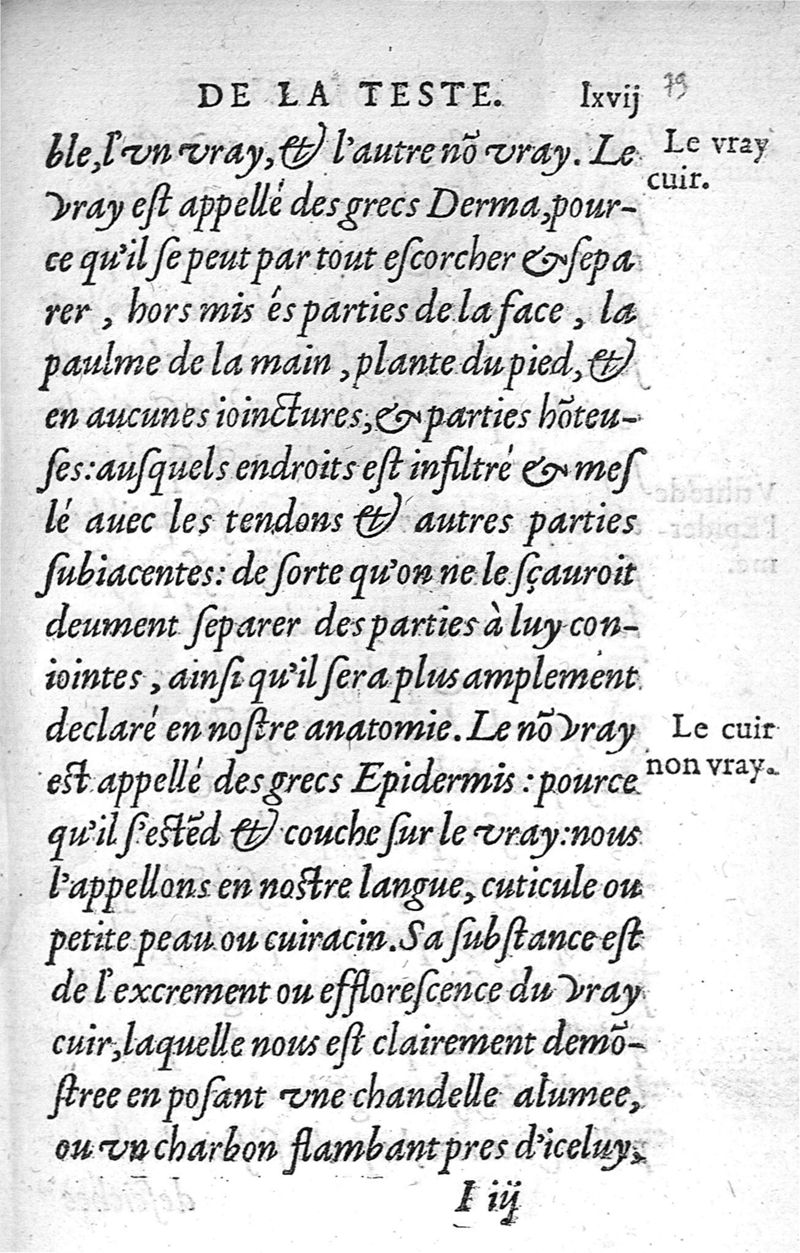 DE LA TESTE. lxvij 79
ble, l'vn vray, & l'autre nõ vray. Le
vray est appellé des grecs Derma, pour-
ce qu'il se peut par tout escorcher & sepa
rer, hors mis és parties de la face, la
paulme de la main, plante du pied, &
en aucunes ioinctures, & parties hõteu-
ses: ausquels endroits est infiltré & mes
lé auec les tendons & autres parties
subiacentes: de sorte qu'on ne le sçauroit
deument separer des parties à luy con-
iointes, ainsi qu'il sera plus amplement
declaré en nostre anatomie. Le nõ vray
est appellé des grecs Epidermis: pource
qu'il s'estẽd & couche sur le vray: nous
l'appellons en nostre langue, cuticule ou
petite peau ou cuiracin. Sa substance est
de l'excrement ou efflorescence du vray
cuir, laquelle nous est clairement demõ-
stree en posant vne chandelle alumee,
ou vn charbon flambant pres d'iceluy,
I iij
Le vray
cuir.
Le cuir
non vray.